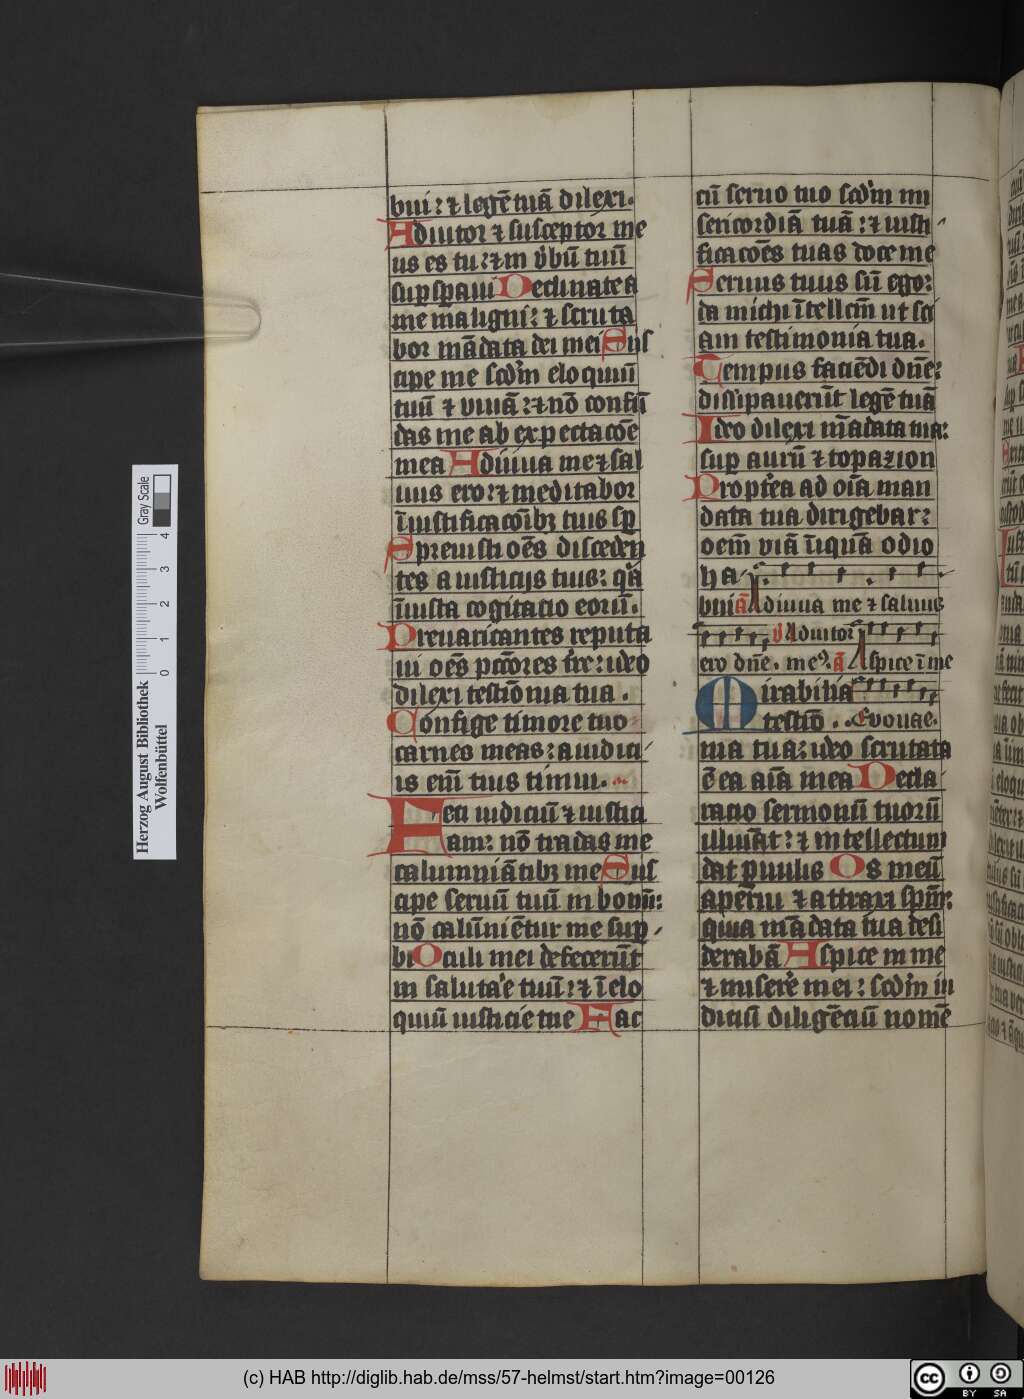 bui: ⁊ legē tuā dilexi.
Adiutor ⁊ susceptor me
us es tu: ⁊ in v̉bū tuū
sup̲sp̲aui Declinate a
me maligni: ⁊ scruta
bor mādata dei mei Sus
cipe me scdm̄ eloquiū
tuū ⁊ viuā: ⁊ nō confū
das me ab expectacōe
mea Adiuua me ⁊ sal
uus ero: ⁊ meditabor
ī iustificacōib; tuis sp̄
Spreuisti oēs disceden
tes a iusticijs tuis: q̉a
īiusta cogitacio eorū.
Preuaricantes reputa
ui oēs pctōres t̉re: ideo
dilexi testīonia tua.
Confige timore tuo
carnes meas: a iudici
is em̄ tuis timui.
Feci iudiciū ⁊ iustici
am: nō tradas me
calumniātib; me Sus
cipe seruū tuū in bonū:
nō calūniētur me sup̲
bi Oculi mei defecerūt
in saluta̓e tuū: ⁊ ī elo
quiū iusticie tue Fac
cū seruo tuo scdm̄ mi
sericordiā tuā: ⁊ iusti
ficacōes tuas doce me
Seruus tuus sū ego:
da michi ītellcm̄ ut sci
am testimonia tua.
Tempus faciēdi dn̄e:
dissipauerūt legē tuā
Ideo dilexi m̄adata tua:
sup̲ aurū ⁊ topazion
Propt̉ea ad oīa man
data tua dirigebar:
oem̄ viā īiquā odio
ha
bui ā Adiuua me ⁊ saluus
v̉ Adiutor
ero dn̄e. meꝰ. ā Aspice ī me
Mirabilia
testīo. Evouae.
nia tua: ideo scrutata
ē ea aīa mea Decla
racio sermonū tuorū
illuīat: ⁊ intellectum
dat p̲uulis Os meū
ap̲erui ⁊ attraxi sp̄m:
quia mādata tua desi
derabā Aspice in me
⁊ miserē mei: scdm̄ iu
diciū diligēciū nomē
Herzog August Bibliothek
Wolfenbüttel
Gray Scale
0 1 2 3 4
(c) HAB http://diglib.hab.de/mss/57-helmst/start.htm?image=00126
cc BY SA